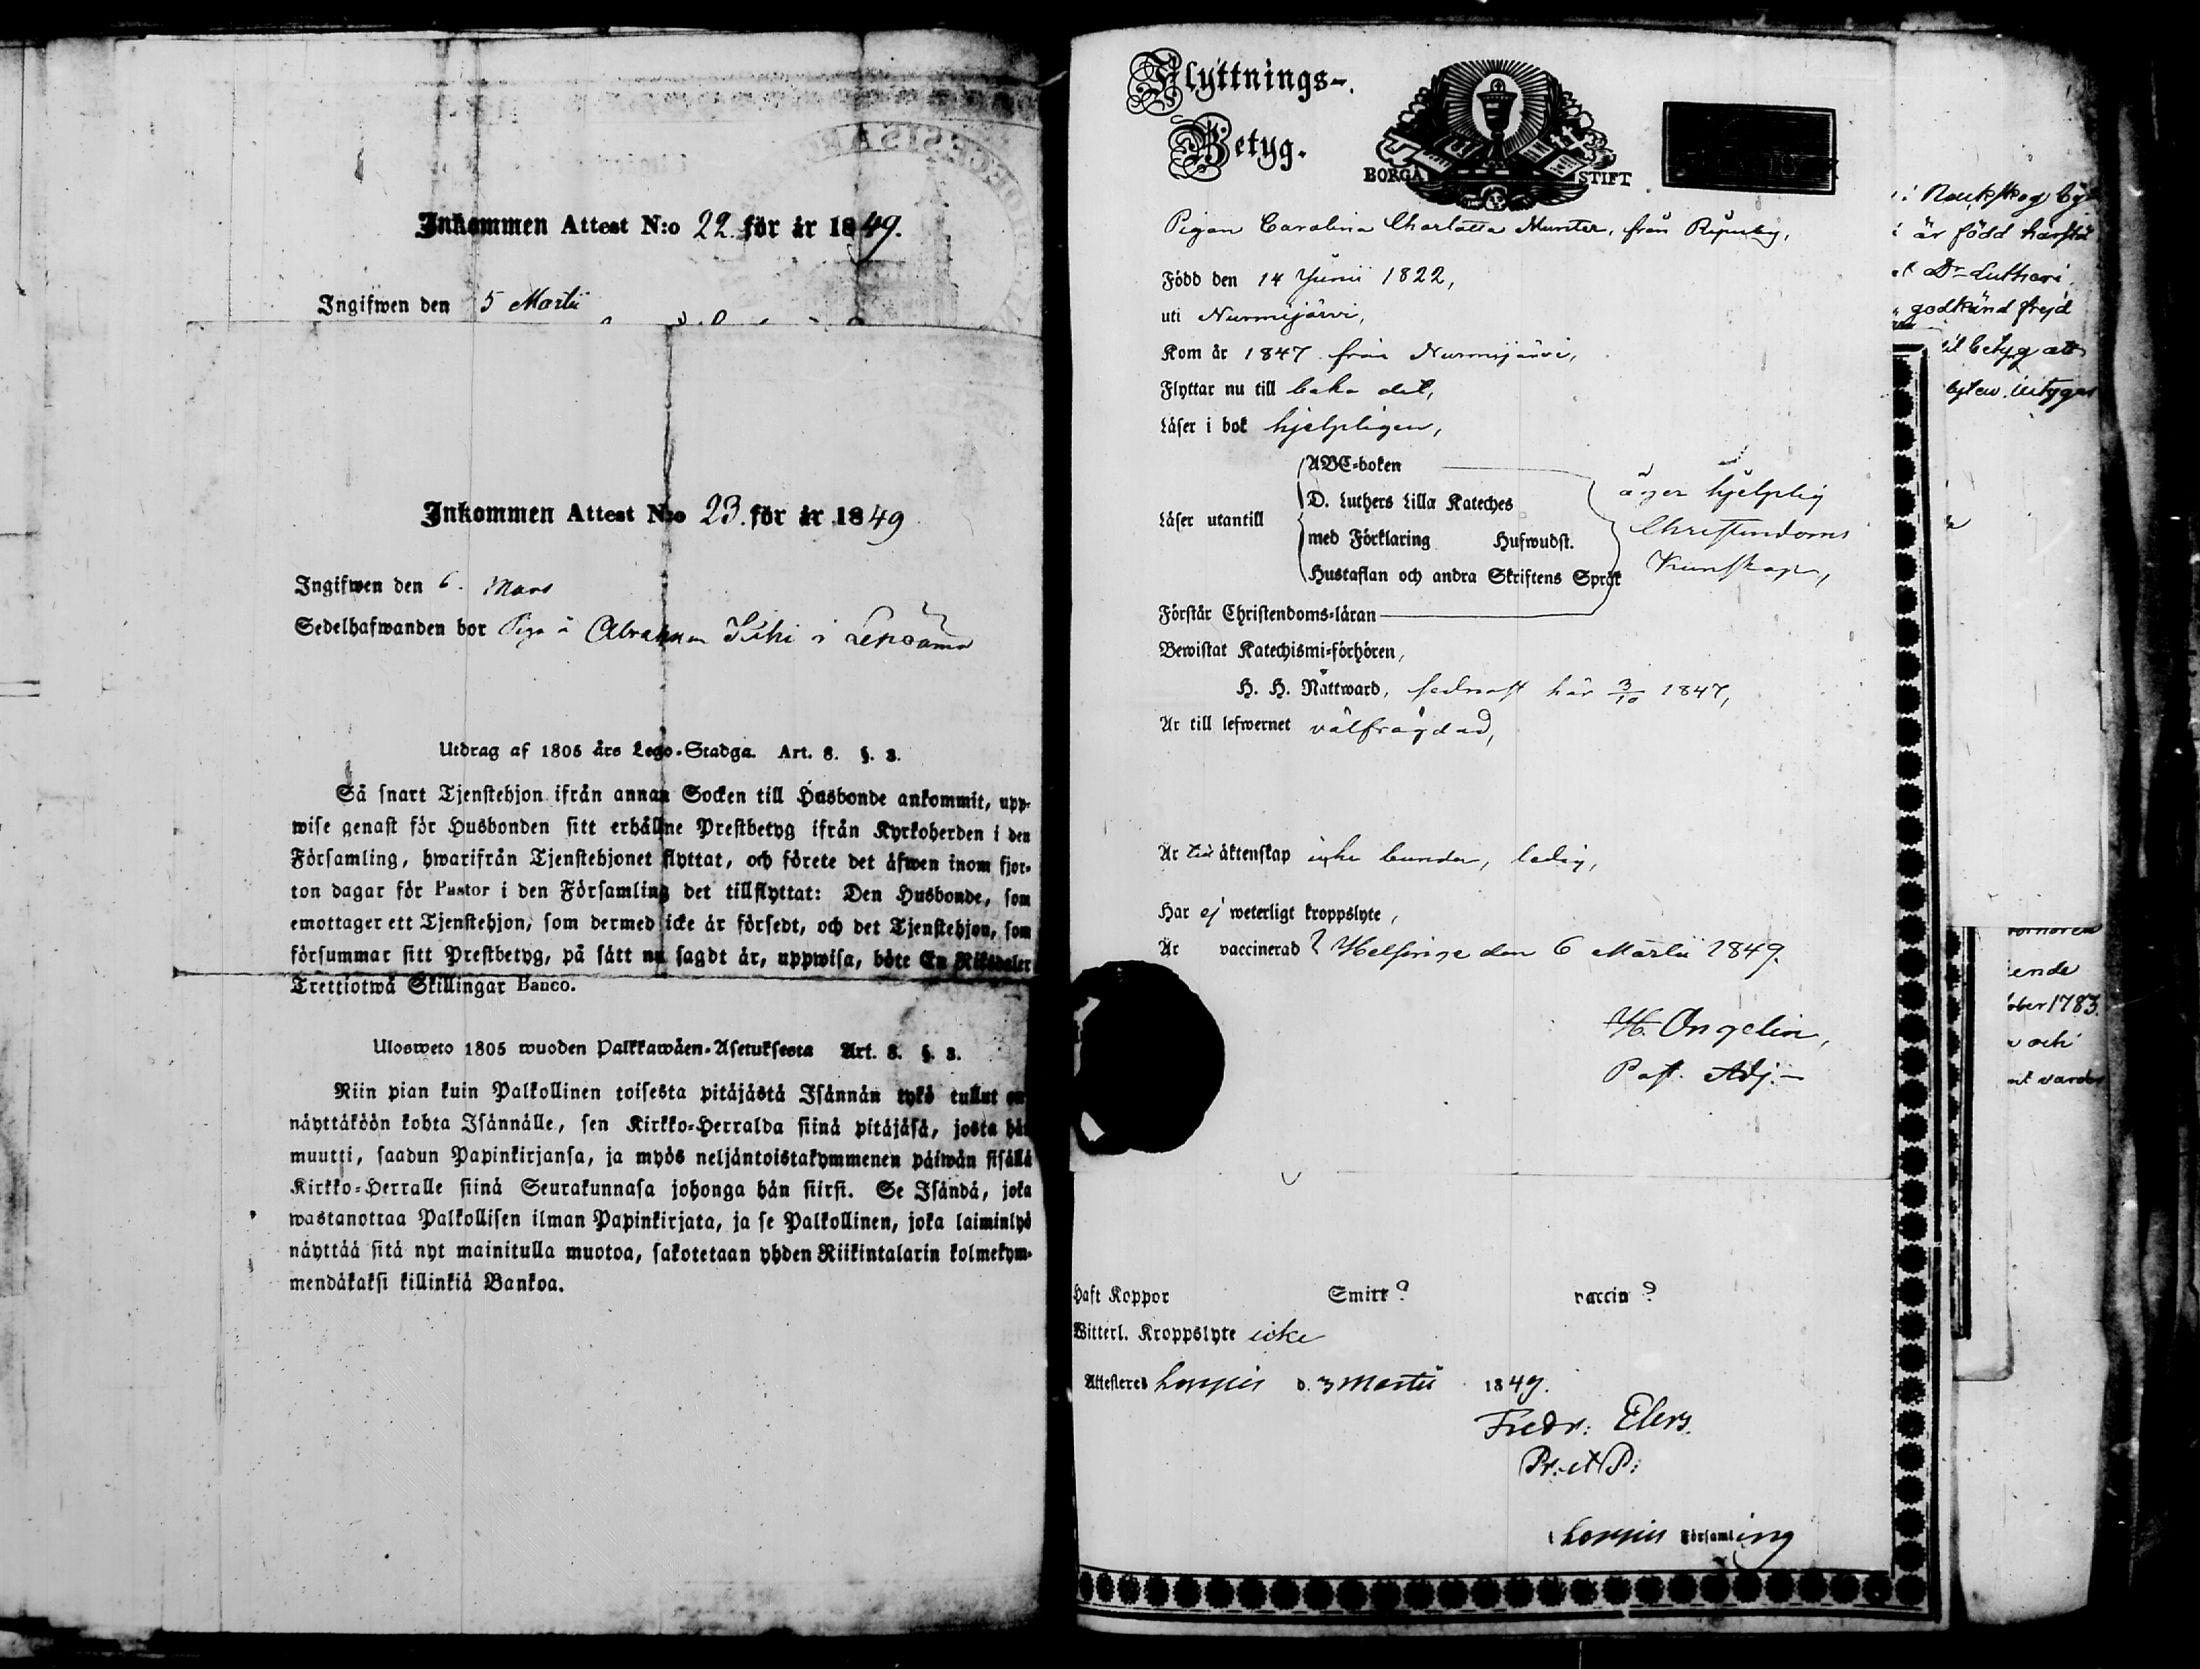 Inkommen Attest N:o 22. för år 1849.
Ingifwen den 5 Martii
Inkommen Attest N:o 23. för år 1849
Ingifwen den 6. Mars
Sedelhafwanden bor Piga å Abraham i
Utdrag af 1805 års Lego-Stadga. Art. 8. §. 3.
Så snart Tjenstehjon ifrån annan Socken till Husbonde ankommit, upp-
wise genast för Husbonden sitt erhållne Prestbetyg ifrån Kyrkoherden i den
Församling, hwarifrån Tjenstehjonet flyttat, och förete det äfwen inom fjor-
ton dagar för Pastor i den Församling det tillflyttat: Den Husbonde, som
emottager ett Tjenstehjon, som dermed icke är försedt, och det Tjenstehjon, som
försummar sitt Prestbetyg, på sätt nu sagdt är, uppwisa, böte En Riksdaler
Trettiotwå Skillingar Banco.
Ulosweto 1805 wuoden Palkkawäen-Asetuksesta Art. 8. §. 3.
Niin pian kuin Palkollinen toisesta pitäjästä Isännän tykö tullut on
näyttäköön kohta Isännälle, sen Kirkko-Herralda siinä pitäjäsä, josta hän
muutti, saadun Papinkirjansa, ja myös neljäntoistakymmenen päiwän sisällä
Kirkko-Herralle siinä Seurakunnasa johonga hän siirsi. Se Isändä, joka
wastanottaa Palkollisen ilman Papinkirjata, ja se Palkollinen, joka laiminlyö
näyttää sitä nyt mainitulla muotoa, sakotetaan yhden Riikintalarin kolmekym-
mendäkaksi killinkiä Bankoa.
Flyttnings-
Betyg.
BORGÅ STIFT
Pigan Carolina Charlotta Munter, från Ripuby,
Född den 14 Junii 1822,
uti Nurmijärvi,
Kom år 1847 från Nurmijärvi,
Flyttar nu till baka dit,
Läser i bok hjelpligen,
Läser utantill
ABC-boken
D. Luthers Lilla Kateches
med Förklaring Hufwudst.
Hustaflan och andra Skriftens Språk
äger hjelplig
Christendoms
Kunskap,
Förstår Christendoms-läran
Bewistat Katechismi-förhören,
H. H. Nattward, sednast här 3/10 1847,
Är till lefwernet välfrägdad,
Är till äktenskap icke bunden, ledig,
Har ej weterligt kroppslyte,
Är vaccinerad? Helsinge den 6 Martii 1849.
H. Ongelin,
Past. Adj.
Haft Koppor Smitt? vaccin?
Witterl. Kroppslyte icke
Attesteres Loppis d. 3 Martii 1849.
Fredr: Elers.
Pr. et P:
Loppis Församling
är född härstä
Dr Lutheri
godkänd frejd
till betyg att
ende
ober 1783.
och